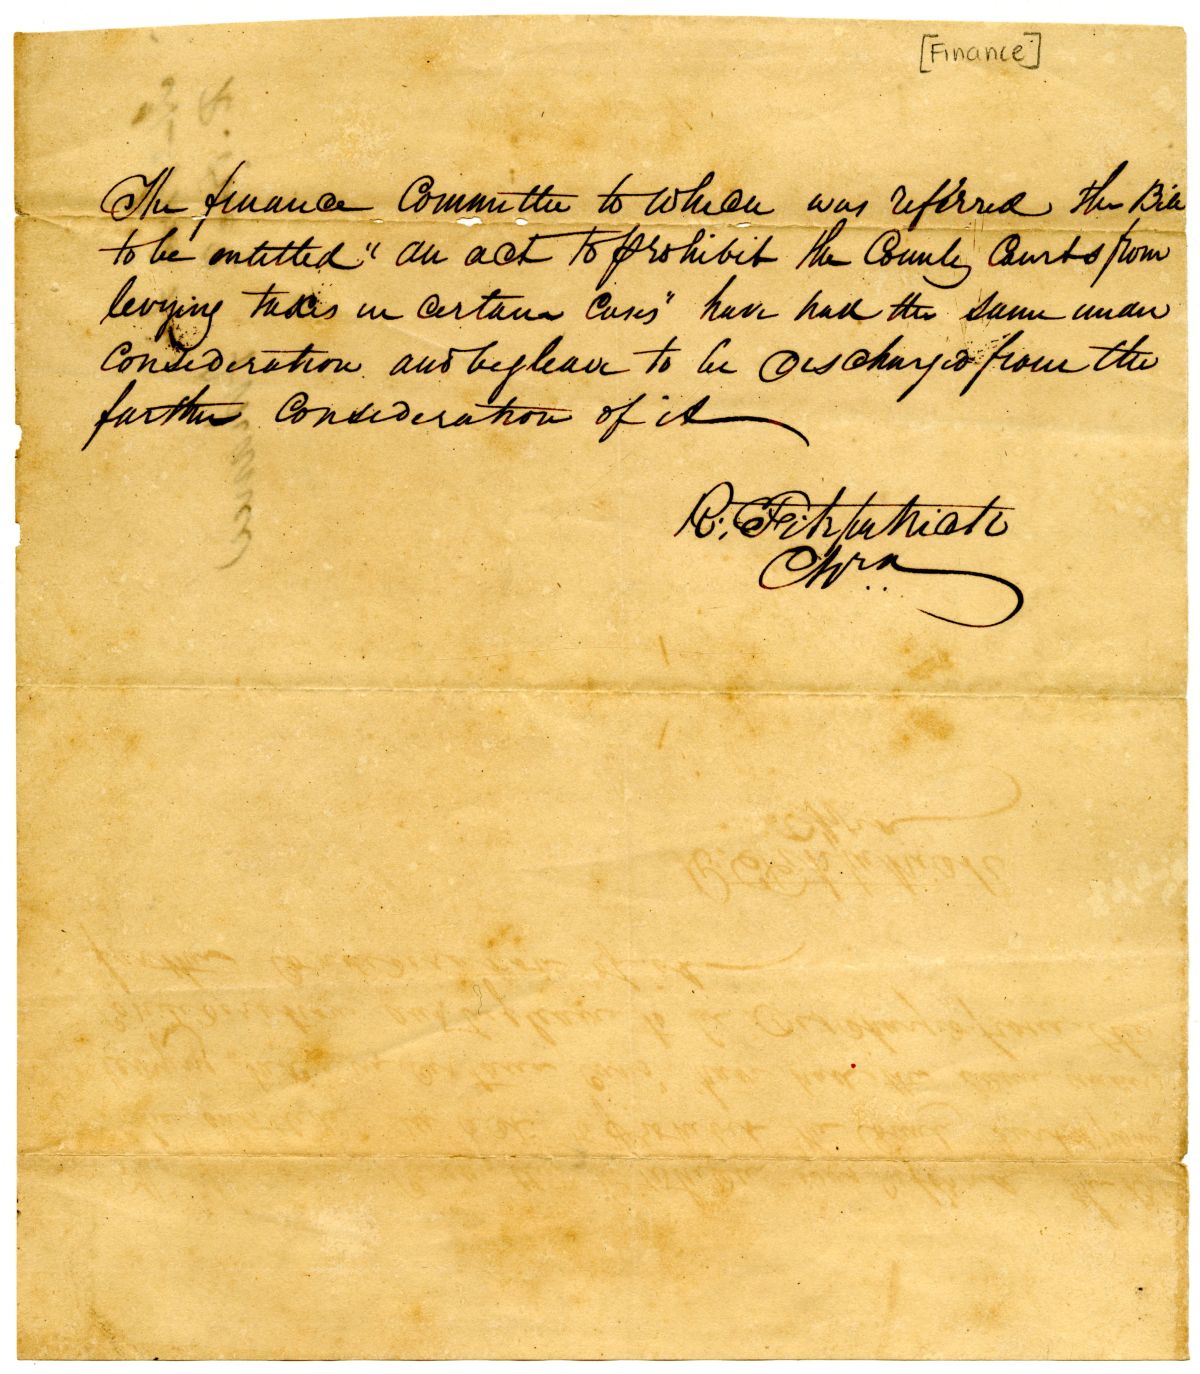 [Finance]
The finance Committee to which was referred the Bill
to be entitled "an act to prohibit the County Courts from
levying taxes in certain cases" have had the same under
consideration and beg leave to be discharged from the
further consideration of it
R. Fitzpatrick
Chrn